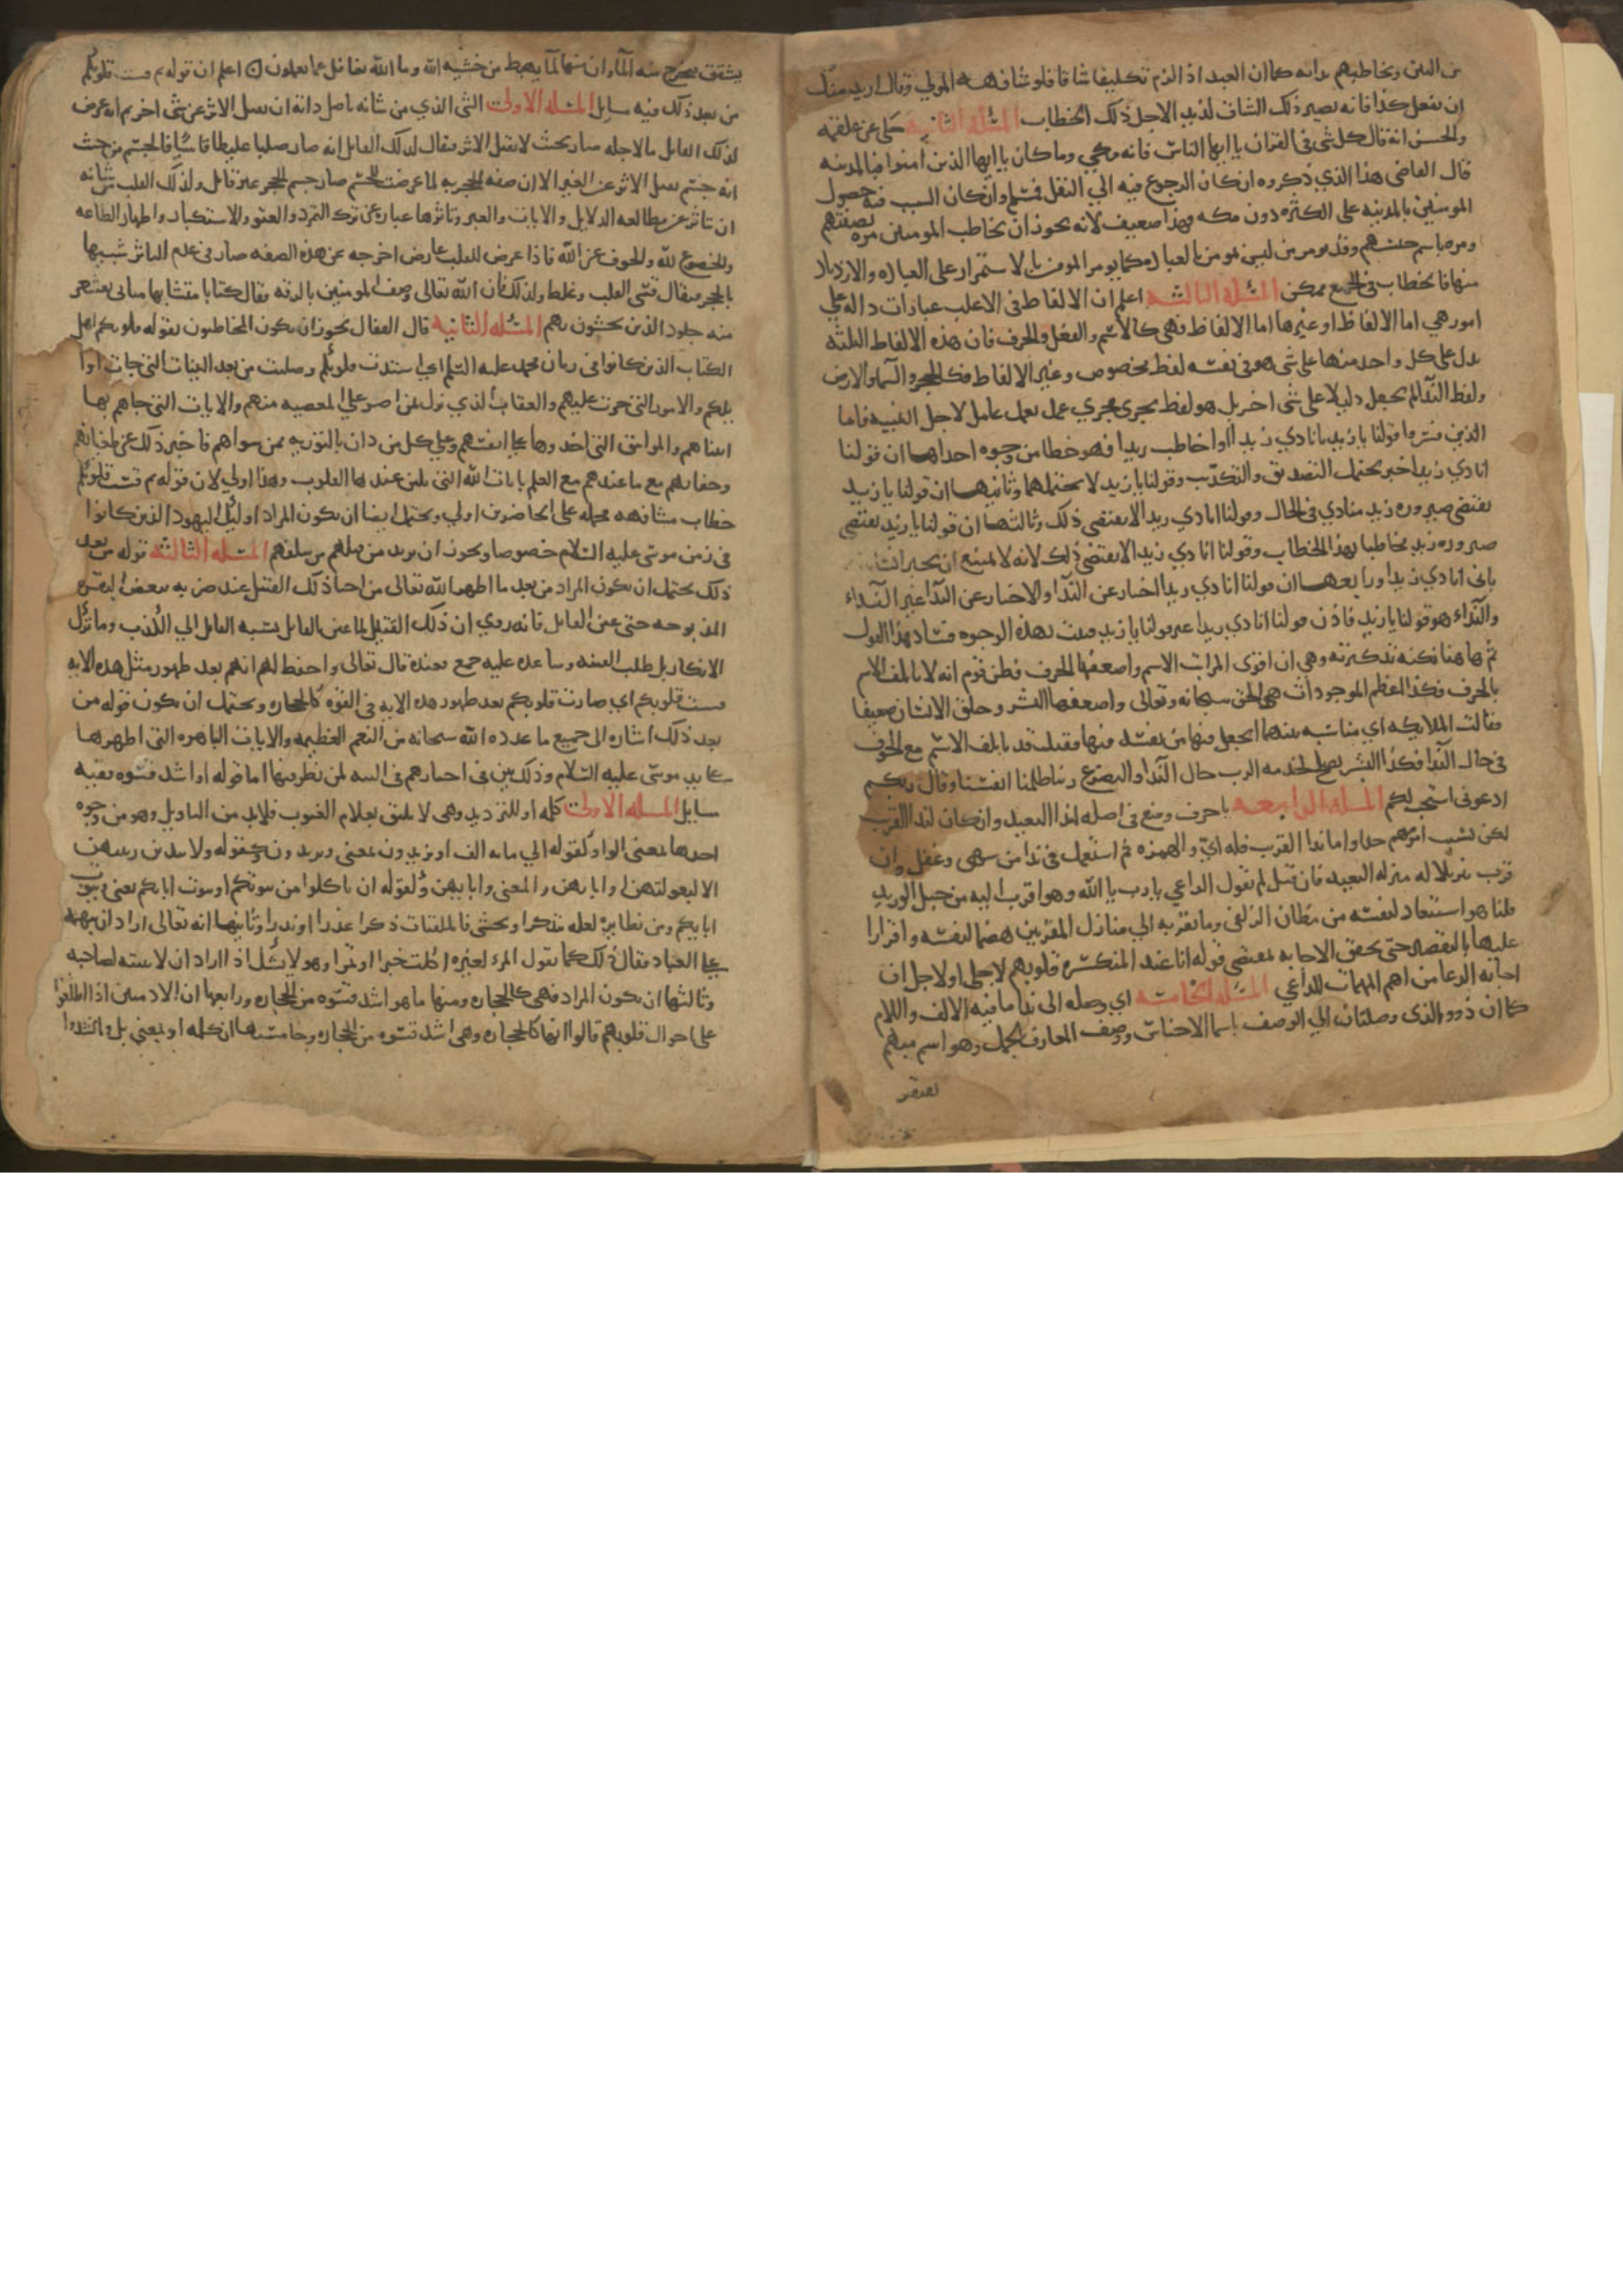 من البين ويخاطبهم بدانه كما ان العبد اذا الزم تكليفا شاقا فلو شافهه المولي وقال اريد منك
ان تفعل كذا فانه يصير ذلك الشاق لذيذا لاجل ذلك الخطاب المسئلة الثانية حكي عن علقمه
والحسن انه قال كل شي في القران يا ايها الناس فانه مكي وما كان يا ايها الذين امنوا فبالمدينه
قال القاضي هذا الذي ذكروه ان كان الرجوع فيه الي النقل فمسلم وان كان السبب فيه حصول
المومنين بالمدينه على الكثره دون مكه فهذا ضعيف لانه يجوز ان يخاطب المومنين مره بصفتهم
ومره باسم جنسهم وقد يومر من ليس بمومن بالعباده كما يومر المومن بالاستمرار على العباده والازدياد
منها فالخطاب في الجميع ممكن المسئلة الثالثة اعلم ان الالفاظ في الاغلب عبارات داله علي
امور هي اما الالفاظ او غيرها اما الالفاظ فهي كالاسم والفعل والحرف فان هذه الالفاظ الثلثه
يدل على كل واحد منها على شي هو في نفسه لفظ مخصوص وغير الالفاظ فكالحجر والسما والارض
ولفظ الندا لم يجعل دليلا على شي اخر بل هو لفظ يجري مجري عمل يعمل عامل لاجل التنبيه فاما
الذين فسروا قولنا يا زيد بانادي زيدا او اخاطب زيدا فهو خطا من وجوه احداها ان قولنا
انادي زيدا خبر يحتمل التصديق والتكذيب وقولنا يا زيد لا يحتملهما وثانيها ان قولنا يا زيد
يقتضي صيروره زيد منادي في الحال وقولنا انادي زيدا لا يقتضي ذلك وثالثها ان قولنا يا زيد يقتضي
صيروره زيد مخاطبا بهذا الخطاب وقولنا انادي زيدا لا يقتضي ذلك لانه لا يمتنع ان يخبر انسانا
باني انادي زيدا ورابعها ان قولنا انادي زيدا اخبار عن الندا والاخبار عن الندا غير النداء
والنداء هو قولنا يا زيد فاذن قولنا انادي زيدا غير قولنا يا زيد فثبت بهذه الوجوه فساد هذا القول
ثم هاهنا نكته نذكرها وهي ان اقوى المراتب الاسم واضعفها الحرف فظن قوم انه لا ياتلف الاسم
بالحرف فكذا اعظم الموجودات هو الحق سبحانه وتعالى واضعفها البشر وخلق الانسان ضعيفا
فقالت الملايكه اي مناسبه بينهما اتجعل فيها من يفسد فيها فقيل قد ياتلف الاسم مع الحرف
في حال الندا فكذا البشر يصلح لخدمه الرب حال الندا والتضرع ربنا ظلمنا انفسنا وقال ربكم
ادعوني استجب لكم المسئلة الرابعة يا حرف وضع في اصله لندا البعيد وان كان لندا القريب
لكن لسبب امر مهم جدا واما ندا القريب فله اي والهمزه ثم استعمل في ندا من سهى وغفل وان
قرب تنزيلا له منزله البعيد فان قيل لم يقول الداعي يا رب يا الله وهو اقرب اليه من حبل الوريد
قلنا هو استبعاد لنفسه من مظان الزلفى وما يقربه الي منازل المقربين هضما لنفسه واقرارا
عليها بالتقصير حتى يحقق الاجابه بمقتضي قوله انا عند المنكسره قلوبهم لاجلي او لاجل ان
اجابه الدعا من اهم المهمات للداعي المسئلة الخامسة اي وصله الى ندا ما فيه الالف واللام
كما ان ذو والذي وصلتان الي الوصف باسما الاجناس ووصف المعارف بالجمل وهو اسم مبهم
يشقق فيخرج منه الماء وان منها لما يهبط من خشيه الله وما الله بغافل عما تعملون اعلم ان قوله ثم قست قلوبكم
من بعد ذلك فيه مسايل المسئلة الاولى الشي الذي من شانه باصل ذاته ان يقبل الاثر عن شي اخر ثم انه عرض
لذلك القابل ما لاجله صار بحيث لا يقبل الاثر فيقال لذلك القابل انه صار صلبا غليظا قاسيا فالجسم من حيث
انه جسم يقبل الاثر عن الغير الا ان صفه الحجريه لما عرضت للجسم صار جسم الحجر غير قابل وكذلك القلب من شانه
ان يتاثر عن مطالعه الدلايل والايات والعبر وتاثرها عباره عن ترك التمرد والعتو والاستكبار واظهار الطاعه
والخضوع لله والخوف عن الله فاذا عرض للقلب عارض اخرجه عن هذه الصفه صار في عدم التاثر شبيها
بالحجر فيقال قسي القلب وغلظ ولذلك فان الله تعالى وصف المومنين بالرقه فقال كتابا متشابها مثاني تقشعر
منه جلود الذين يخشون ربهم المسئلة الثانية قال القفال يجوز ان يكون المخاطبون بقوله قلوبكم اهل
الكتاب الذين كانوا في زمان محمد عليه السلم اي اشتدت قلوبكم وصلبت من بعد البينات التي جات اوا
يلكم والامور التي جرت عليهم والعقاب الذي نزل بمن اصر علي المعصيه منهم والايات التي جاهم بها
انبياهم والمواثيق التي اخذوها على انفسهم وعلي كل من دان بالتوريه ممن سواهم فاخبر ذلك عن طغيانهم
وجفايهم مع ما عندهم مع العلم بايات الله التي تلين عند لها القلوب وهذا اولي لان قوله ثم قست قلوبكم
خطاب مشافهه فحمله على الحاضرين اولي ويحتمل ايضا ان يكون المراد اوليك اليهود الذين كانوا
في زمن موسى عليه السلام خصوصا ويجوز ان يريد من قبلهم من سلفهم المسئلة الثالثة قوله من بعد
ذلك يحتمل ان يكون المراد من بعد ما اظهره الله تعالى من احيا ذلك القتيل عند ضربه ببعض البقره
المذبوحه حتى عين القاتل فانه روي ان ذلك القتيل لما عين القاتل نسبه القاتل الي الكذب وما ترك
الانكار بل طلب الفتنه وساعده عليه جمع فعنده قال تعالى واصفا لهم انهم بعد ظهور مثل هذه الايه
قست قلوبكم اي صارت قلوبكم بعد ظهور هذه الايه في القسوه كالحجاره ويحتمل ان يكون قوله من
بعد ذلك اشاره الى جميع ما عدده الله سبحانه من النعم العظيمه والايات الباهره التي اظهرها
على يد موسى عليه السلام وذلك بين في اخبارهم في التيه لمن نظر فيها اما قوله او اشد قسوه ففيه
مسايل المسئلة الاولى كلمه او للترديد وهي لا يليق بعلام الغيوب فلا بد من التاويل وهو من وجوه
احدها بمعنى الواو كقوله الي مايه الف او يزيدون بمعنى ويزيدون وكقوله ولا يبدين زينتهن
الا لبعولتهن او ابايهن والمعنى وابايهن وكقوله ان تاكلوا من بيوتكم او بيوت ابايكم يعني وبيوت
ابايكم ومن نظايره لعله يتذكر او يخشى فالملقيات ذكرا عذرا او نذرا وثانيها انه تعالى اراد ان يبهمه
على العباد فقال ذلك كما يقول المرء لغيره اكلت خبزا او تمرا وهو لا يشك اذا اراد ان لا يبينه لصاحبه
وثالثها ان يكون المراد فهي كالحجاره ومنها ما هو اشد قسوه من الحجاره ورابعها ان الادميين اذا اطلعوا
على احوال قلوبهم قالوا انها كالحجاره وهي اشد قسوه من الحجاره وخامسها ان كلمه او بمعني بل وانشدوا